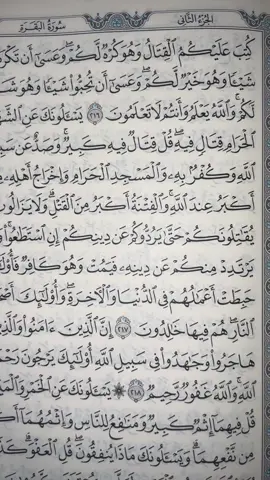 الجُزْءُ الثَّانِي سُورَةُ البَقَرَةِ
كُتِبَ عَلَيْكُمُ ٱلْقِتَالُ وَهُوَ كُرْهٌ لَّكُمْ ۖ وَعَسَىٰٓ أَن تَكْرَ
شَيْـًٔا وَهُوَ خَيْرٌ لَّكُمْ ۖ وَعَسَىٰٓ أَن تُحِبُّوا۟ شَيْـًٔا وَهُوَ شَـ
لَّكُمْ ۗ وَٱللَّهُ يَعْلَمُ وَأَنتُمْ لَا تَعْلَمُونَ ٢١٦ يَسْـَٔلُونَكَ عَنِ ٱلشَّهْـ
ٱلْحَرَامِ قِتَالٍ فِيهِ ۖ قُلْ قِتَالٌ فِيهِ كَبِيرٌ ۖ وَصَدٌّ عَن سَبِيـ
ٱللَّهِ وَكُفْرٌۢ بِهِۦ وَٱلْمَسْجِدِ ٱلْحَرَامِ وَإِخْرَاجُ أَهْلِهِۦ
أَكْبَرُ عِندَ ٱللَّهِ ۚ وَٱلْفِتْنَةُ أَكْبَرُ مِنَ ٱلْقَتْلِ ۗ وَلَا يَزَالُو
يُقَـٰتِلُونَكُمْ حَتَّىٰ يَرُدُّوكُمْ عَن دِينِكُمْ إِنِ ٱسْتَطَـٰعُوا۟ ۚ
يَرْتَدِدْ مِنكُمْ عَن دِينِهِۦ فَيَمُتْ وَهُوَ كَافِرٌ فَأُو۟لَـٰٓ
حَبِطَتْ أَعْمَـٰلُهُمْ فِى ٱلدُّنْيَا وَٱلْـَٔاخِرَةِ ۖ وَأُو۟لَـٰٓئِكَ أَصْ
ٱلنَّارِ ۖ هُمْ فِيهَا خَـٰلِدُونَ ٢١٧ إِنَّ ٱلَّذِينَ ءَامَنُوا۟ وَٱلَّذِيـ
هَاجَرُوا۟ وَجَـٰهَدُوا۟ فِى سَبِيلِ ٱللَّهِ أُو۟لَـٰٓئِكَ يَرْجُونَ رَحْمَـ
ٱللَّهِ ۚ وَٱللَّهُ غَفُورٌ رَّحِيمٌ ٢١٨ ۞ يَسْـَٔلُونَكَ عَنِ ٱلْخَمْرِ وَٱلْمَـ
قُلْ فِيهِمَآ إِثْمٌ كَبِيرٌ وَمَنَـٰفِعُ لِلنَّاسِ وَإِثْمُهُمَآ أَكْـ
مِن نَّفْعِهِمَا ۗ وَيَسْـَٔلُونَكَ مَاذَا يُنفِقُونَ قُلِ ٱلْعَفْوَ ۗ كَذَ